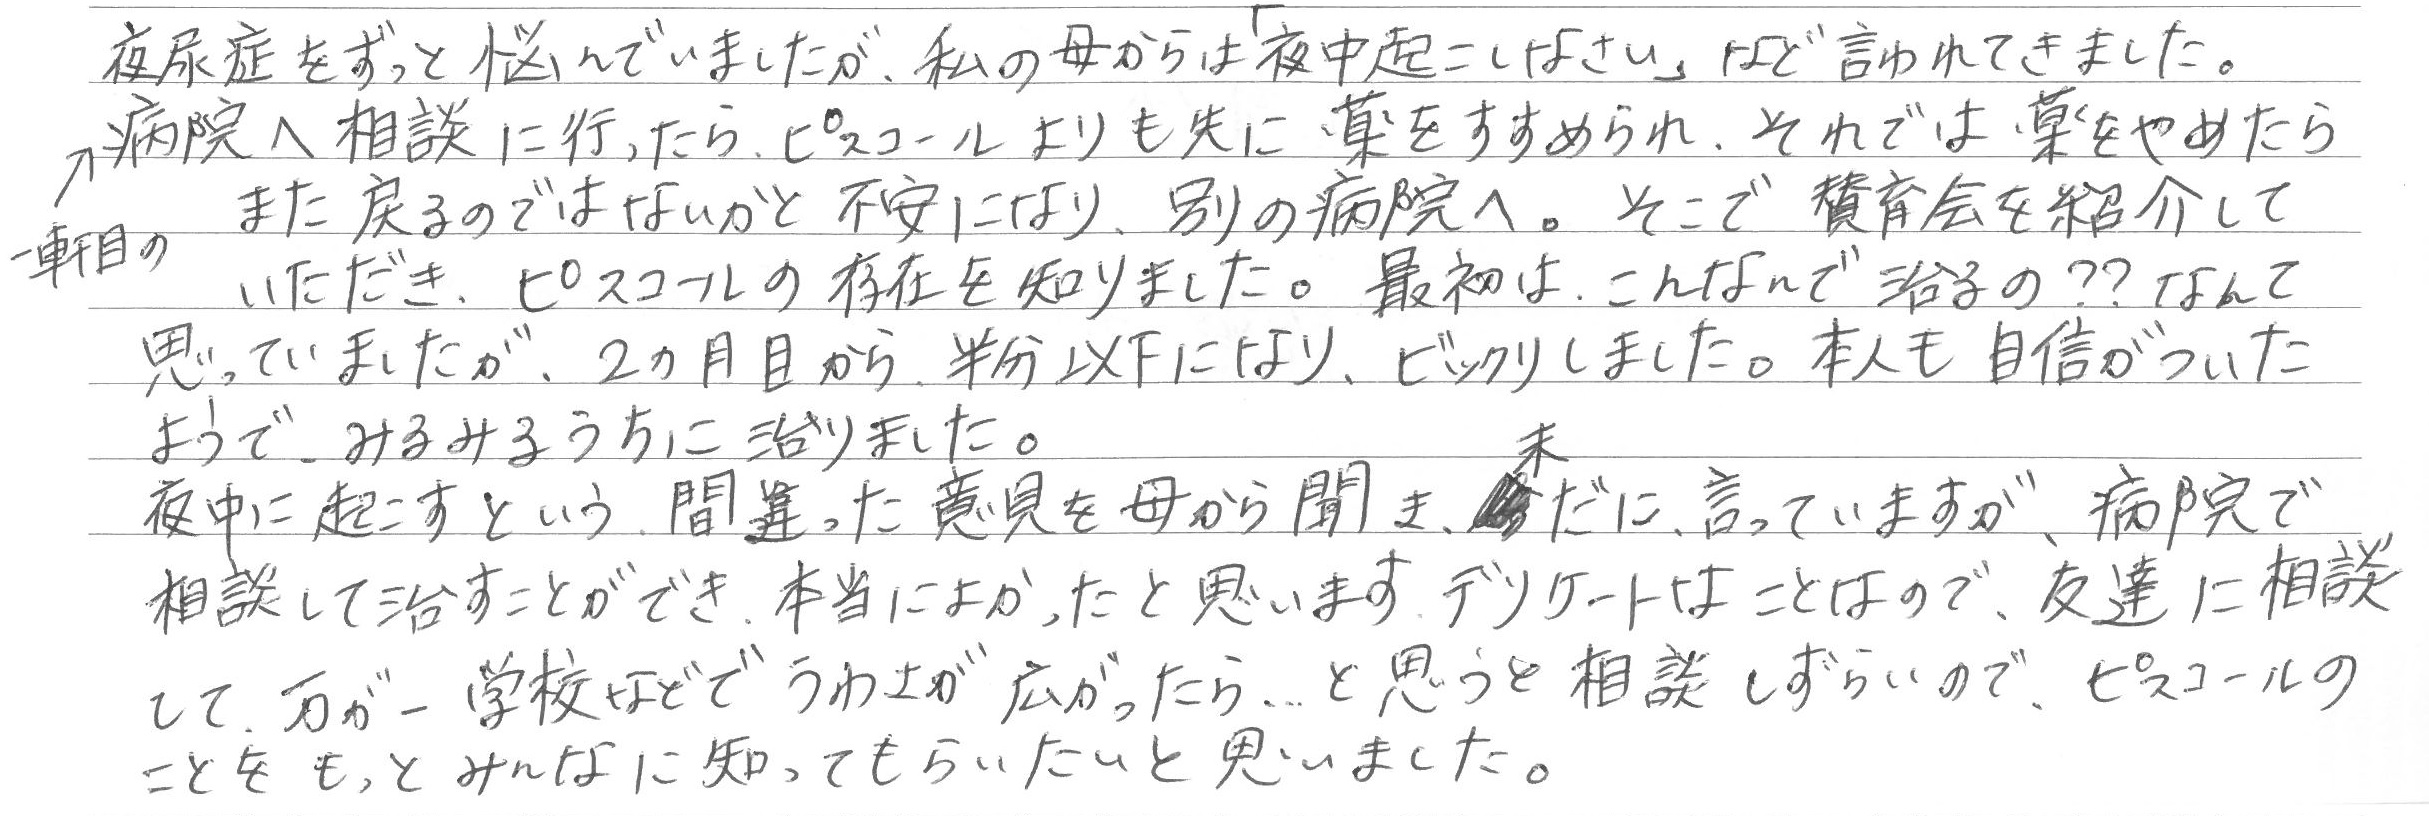 夜尿症をずっと悩んでいましたが、私の母からは「夜中起こしなさい」など言われてきました。
病院へ相談に行ったら、ピスコールよりも先に薬をすすめられ、それでは薬をやめたら
また戻るのではないかと不安になり、別の病院へ。そこで賛育会を紹介して
一軒目の
いただき、ピスコールの存在を知りました。最初は、こんなんで治るの??なんて
思っていましたが、2ヵ月目から、半分以下になり、ビックリしました。本人も自信がついた
ようで、みるみるうちに治りました。
夜中に起こすという、間違った意見を母から聞き、未だに、言っていますが、病院で
相談して治すことができ、本当によかったと思います。デリケートなことなので、友達に相談
して、万が一学校などでうわさが広がったら…と思うと相談しずらいので、ピスコールの
ことをもっとみんなに知ってもらいたいと思いました。